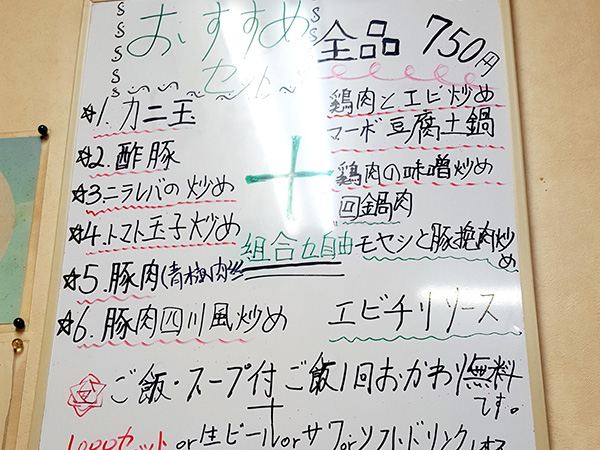 おすすめ
セット
全品 750円
☆1. カニ玉
☆2. 酢豚
☆3. ニラレバの炒め
☆4. トマト玉子炒め
☆5. 豚肉(青椒肉絲
☆6. 豚肉四川風炒め
+
組合五自由
鶏肉とエビ炒め
マーボ豆腐土鍋
鶏肉の味噌炒め
回鍋肉
モヤシと豚挽肉炒め
エビチリソース
ご飯・スープ付 ご飯1回おかわり無料です。
+
or生ビールorサワorソフトドリンク